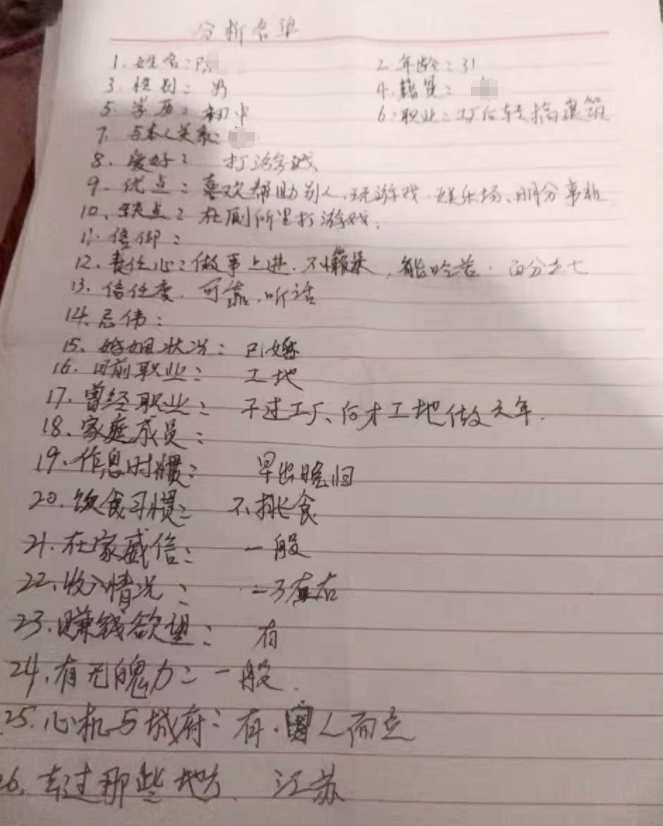 分析名单
1. 姓名: 2. 年龄: 31
3. 性别: 男 4. 籍贯:
5. 学历: 初中 6. 职业: 工厂后转搞建筑
7. 与本人关系:
8. 爱好: 打游戏
9. 优点: 喜欢帮助别人、玩游戏、娱乐场、明分事非
10. 缺点: 在厕所里打游戏.
11. 信仰:
12. 责任心: 做事上进. 不懒, 能吃苦. 百分之七
13. 信任度. 可靠. 听话
14. 忌伟:
15. 婚姻状况: 已婚
16. 目前职业: 工地
17. 曾经职业: 干过工厂、后才工地做 年.
18. 家庭成员:
19. 作息时惯: 早出晚归
20. 饮食习惯: 不挑食
21. 在家威信: 一般
22. 收入情况: 左右
23. 赚钱欲望: 有
24. 有无魄力: 一般.
25. 心机与城府: 有. 人而立
26. 去过那些地方. 江苏